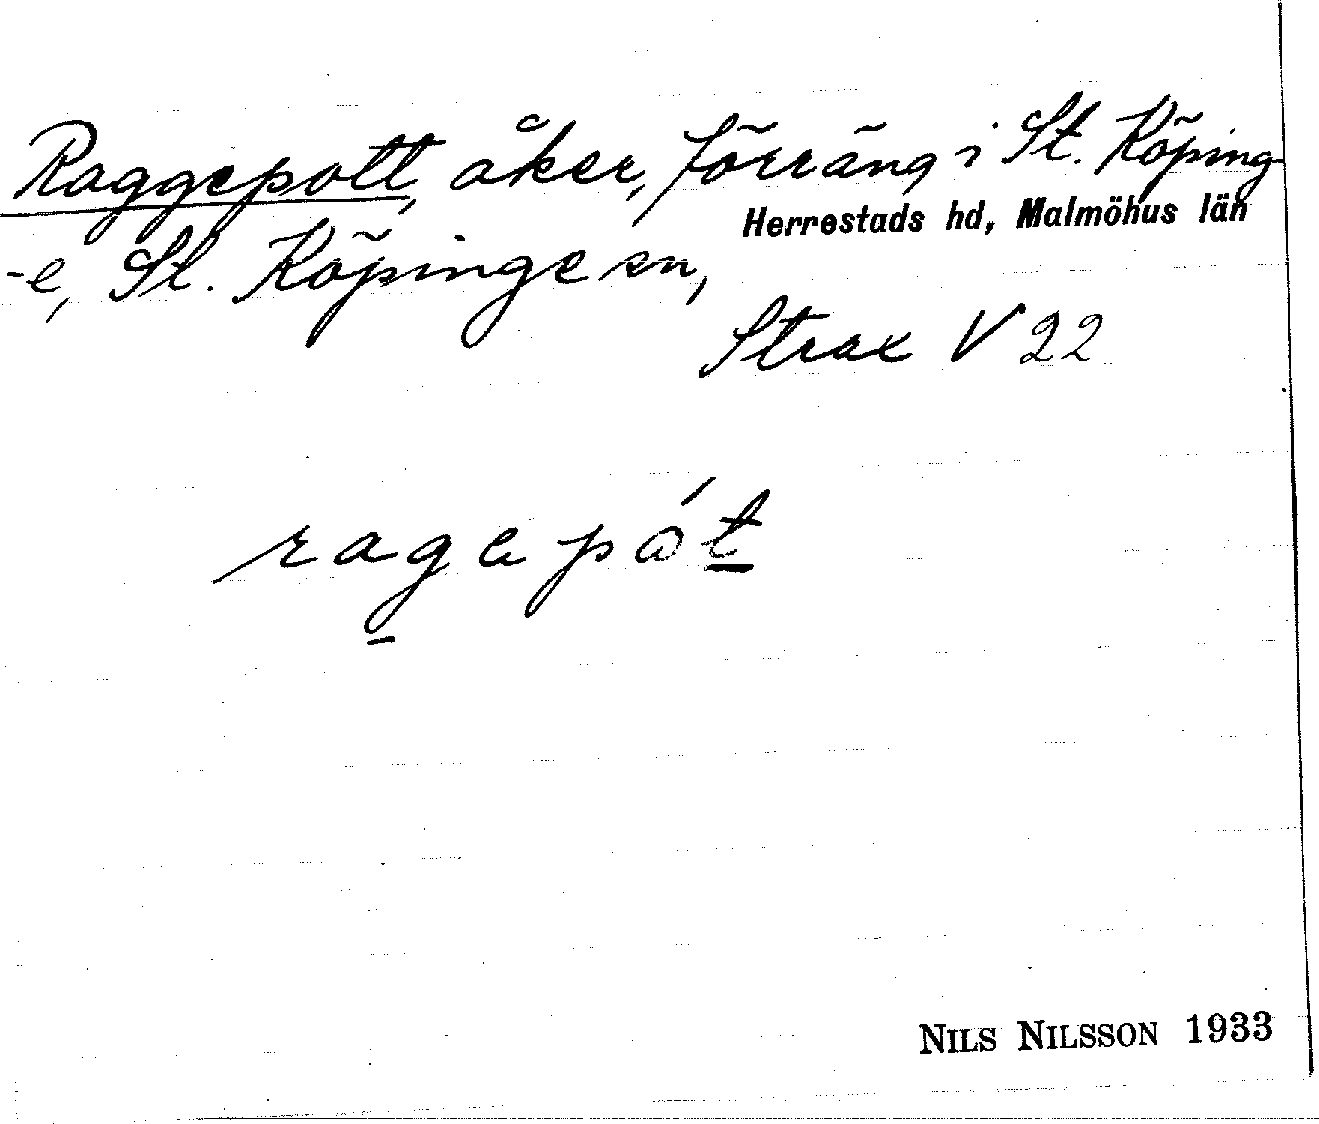 Raggepott, åker, förr äng i St. Köping
Herrestads hd, Malmöhus län
-e, St. Köpinge sn,
Strax V 22
ragepåt
NILS NILSSON 1933